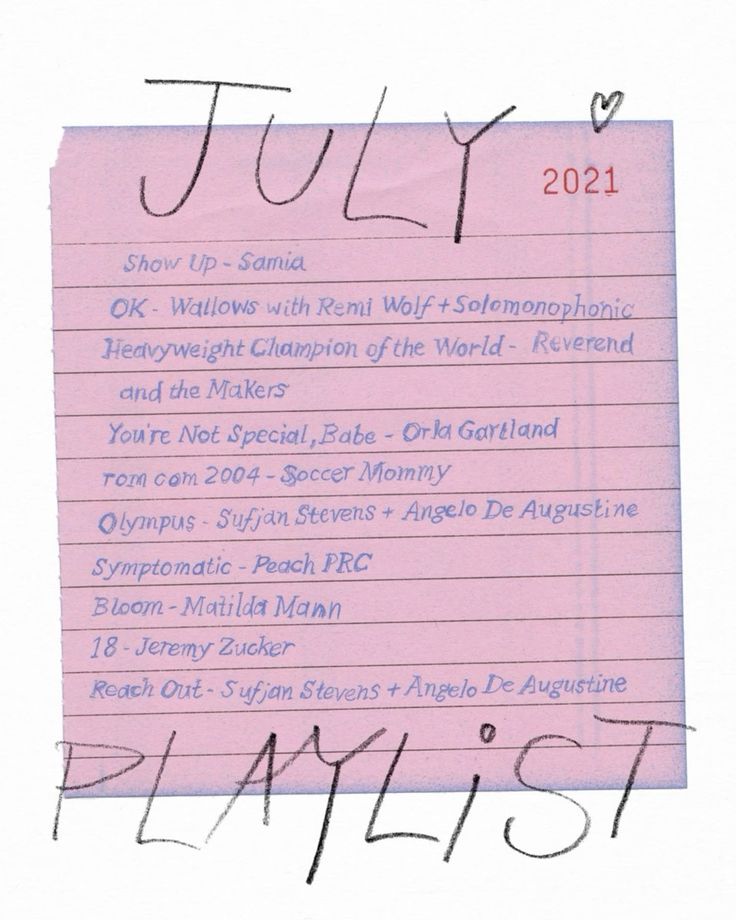 JULY
2021
Show Up - Samia
OK - Wallows with Remi Wolf + Solomonophonic
Heavyweight Champion of the World - Reverend
and the Makers
You're Not Special, Babe - Orla Gartland
rom com 2004 - Soccer Mommy
Olympus - Sufjan Stevens + Angelo De Augustine
Symptomatic - Peach PRC
Bloom - Matilda Mann
18 - Jeremy Zucker
Reach Out - Sufjan Stevens + Angelo De Augustine
PLAYLiST